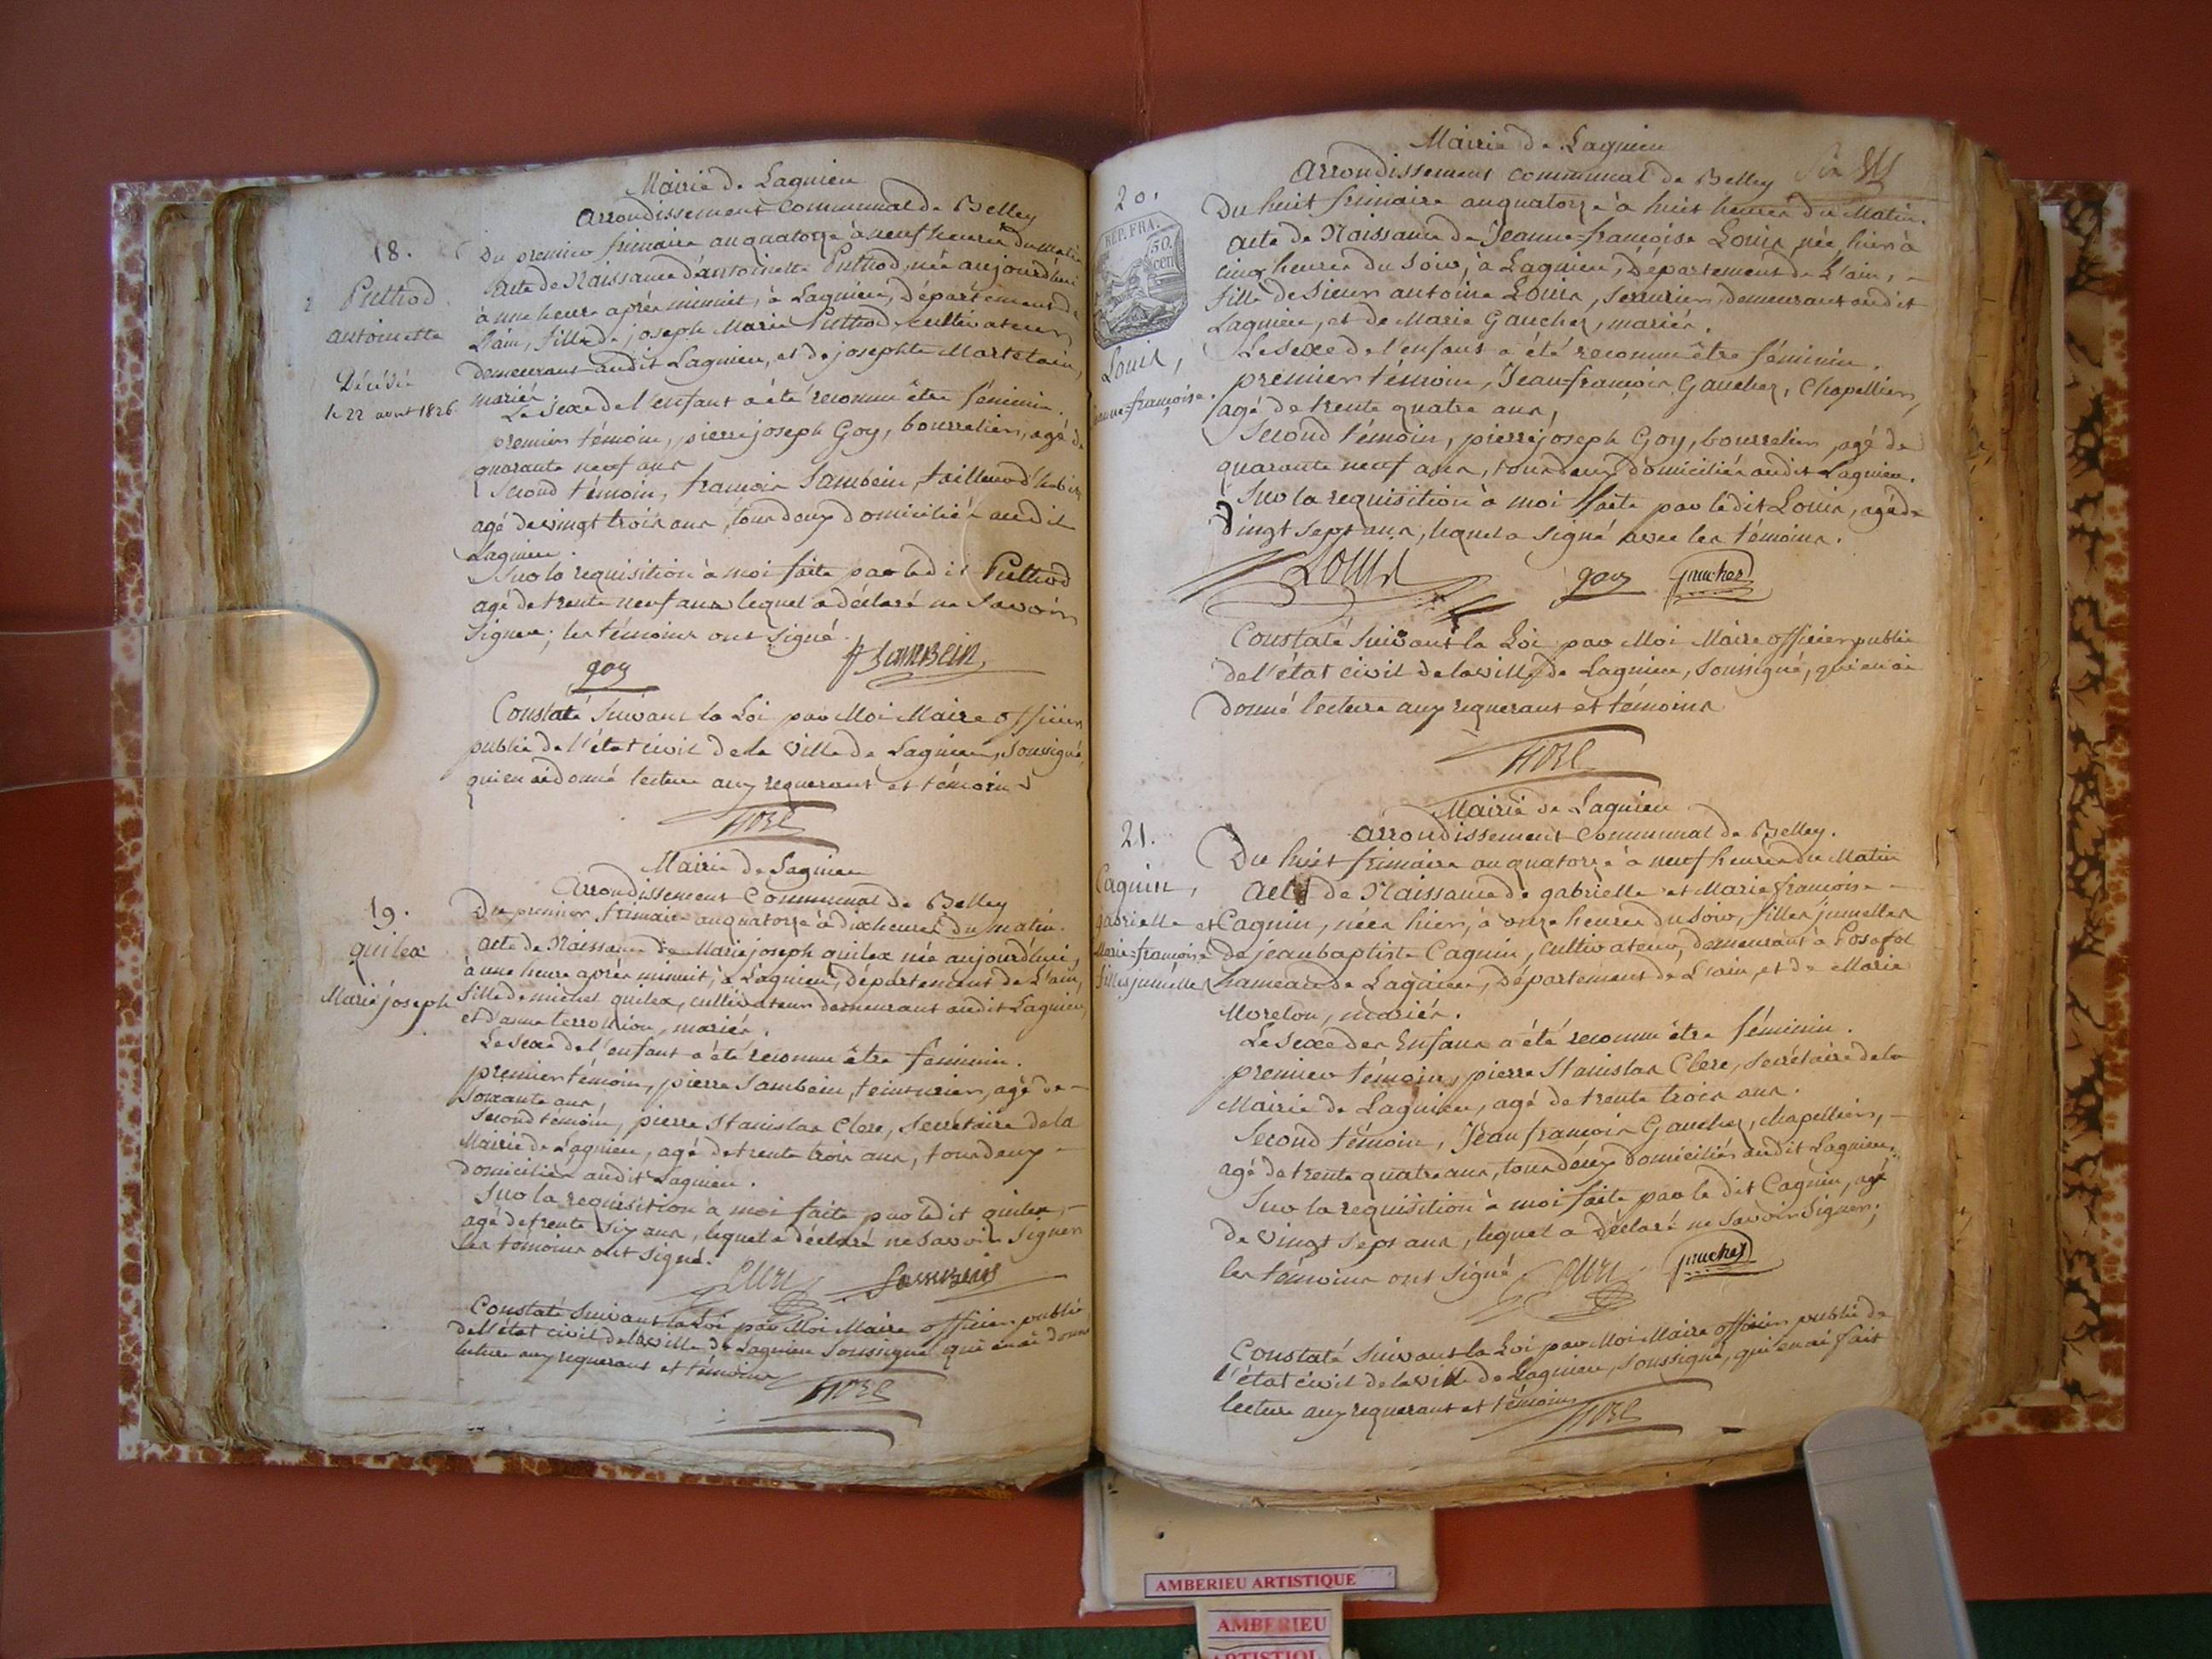 Mairie de Lagnieu
Arrondissement Communal de Belley
18.
Puthod
antoinette
Décédée
le 22 aout 1826.
Du premier frimaire an quatorze à neuf heures du matin
acte de Naissance d'antoinette Puthod, née aujourd'hui
à une heure après minuit, à Lagnieu, Département de
l'ain, fille de joseph Marie Puthod, cultivateur
demeurant audit Lagnieu, et de josephte Martelain,
mariés
Le Sexe de l'enfant a été reconnu être féminin.
premier témoin, pierre joseph Goy, bourrelier, agé de
quarante neuf ans
Second témoin, françois Sambein, tailleur d'habits
agé de vingt trois ans, tous deux domiciliés audit
Lagnieu.
Sur la requisition à moi faite par ledit Puthod
agé de trente neuf ans lequel a déclaré ne Savoir
Signer; les témoins ont Signé.
goy f Sambein
Constaté Suivant la Loi par Moi Maire officier
public de l'état civil de la ville de Lagnieu, Soussigné,
qui en ai donné lecture aux requerant et témoins
Mairie de Lagnieu
Arrondissement Communal de Belley
19.
quilex
Marie joseph
Du premier frimaire an quatorze à dix heures du matin.
acte de Naissance de Marie joseph quilex née aujourd'hui,
à une heure après minuit, à Lagnieu, département de L'ain,
fille de michel quilex, cultivateur demeurant audit Lagnieu,
et d'anne terrollion, mariés.
Le Sexe de l'enfant a été reconnu être féminin.
premier témoin, pierre Sambein, teinturier, agé de
Soixante ans,
Second témoin, pierre Stanislas Clerc, Secrétaire de la
Mairie de Lagnieu, agé de trente trois ans, tous deux
domiciliés audit Lagnieu.
Sur la requisition à moi faite par ledit quilex,
agé de trente Six ans, lequel a déclaré ne Savoir Signer
les témoins ont Signé.
Sambein
Constaté Suivant la Loi par Moi Maire officier public
de l'état civil de la ville de Lagnieu Soussigné qui en ai donné
lecture aux requerant et témoins
Mairie de Lagnieu
Arrondissement Communal de Belley
20.
REP. FRA.
50.
cen
Louis,
jeanne-françoise.
Du huit frimaire an quatorze à huit heures du Matin.
acte de Naissance de Jeanne-françoise Louis, née hier à
cinq heures du Soir, à Lagnieu, Département de L'ain,
fille de Sieur antoine Louis, Serrurier, demeurant audit
Lagnieu, et de Marie Gaucher, mariés.
Le Sexe de l'enfant a été reconnu être féminin.
premier témoin, Jean-françois Gaucher, Chapellier,
agé de trente quatre ans,
Second témoin, pierre joseph Goy, bourrelier, agé de
quarante neuf ans, tous deux domiciliés audit Lagnieu.
Sur la requisition à moi faite par ledit Louis, agé de
vingt Sept ans, lequel a Signé avec les témoins.
Louis goy gaucher
Constaté Suivant la Loi par Moi Maire officier public
de l'état civil de la ville de Lagnieu, Soussigné, qui en ai
donné lecture aux requerant et témoins
Mairie de Lagnieu
Arrondissement Communal de Belley.
21.
Caquin,
gabrielle et
Marie-françoise
filles jumelles
Du huit frimaire an quatorze à neuf heures du Matin
Acte de Naissance de gabrielle et Marie françoise
Caquin, nées hier, à onze heures du Soir, filles jumelles
de jean baptiste Caquin, cultivateur, demeurant à Posafol
hameau de Lagnieu, Département de L'ain, et de Marie
Morelon, mariés.
Le Sexe des Enfans a été reconnu être féminin.
premier témoin, pierre Stanislas Clerc, Secrétaire de la
Mairie de Lagnieu, agé de trente trois ans.
Second témoin, Jean françois Gaucher, chapellier,
agé de trente quatre ans, tous deux domiciliés audit Lagnieu.
Sur la requisition à moi faite par le dit Caquin, agé
de vingt Sept ans, lequel a Déclaré ne Savoir Signer;
les témoins ont Signé gaucher
Constaté Suivant la Loi par Moi Maire officier public de
l'état civil de la ville de Lagnieu, Soussigné, qui en ai fait
lecture aux requerant et témoins
AMBERIEU ARTISTIQUE
AMBERIEU
ARTISTIQUE